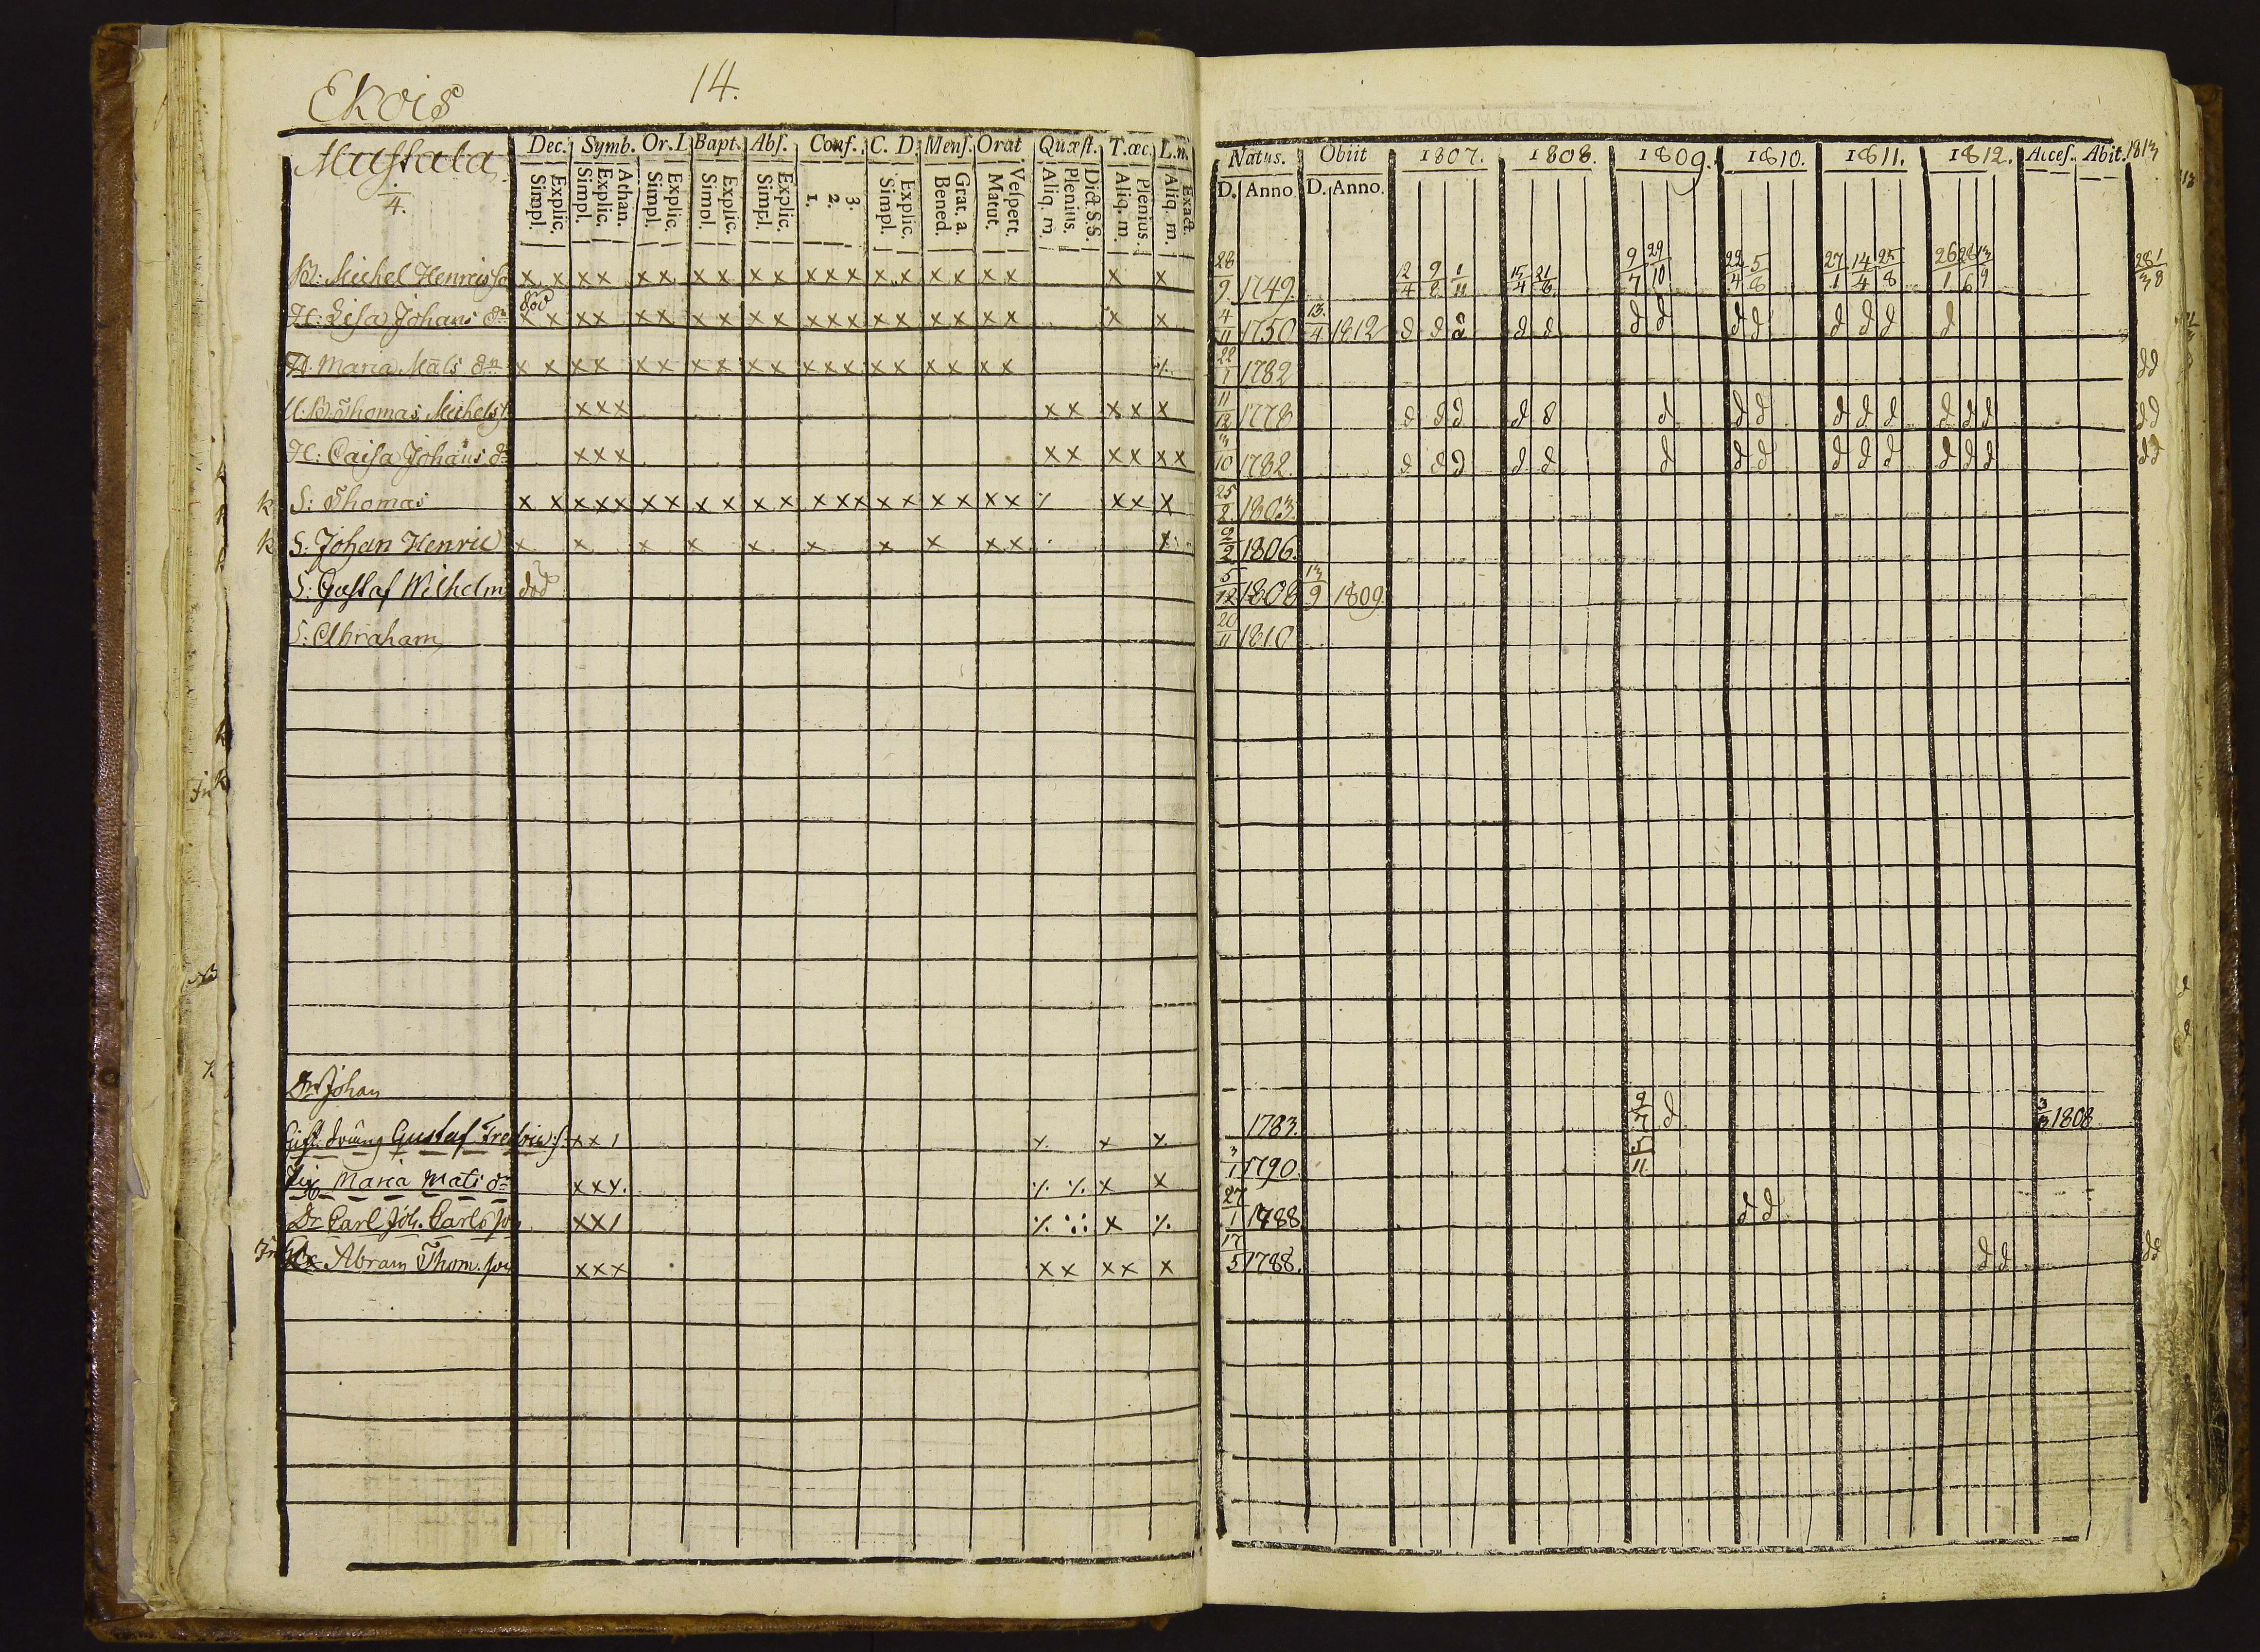 Ekois
14.
Mustala
4.
Dec. Symb. Or. I. Bapt. Abs. Conf. C. D. Mens. Orat. Quæst. T. œc. L. n.
Simpl. Explic. Simpl. Explic. Athan. Simpl. Explic. Simpl. Explic. Simpl. Explic. 1. 2. 3. Simpl. Explic. Bened. Grat. a. Matut. Vespert. Aliq. m. Plenius. Dict S.S. Aliq. m. Plenius. Aliq. m. Exact.
B: Michel Henrics x x x x x x x x x x x x x x x x x x x x x
död
H: Lisa Johans dr x x x x x x x x x x x x x x x x x x x x x
H. Maria Mats dr x x x x x x x x x x x x x x x x x x x
Thomas Michels x x x x x x x x
H: Caisa Johans dr x x x x x x x x x
k S: Thomas x x x x x x x x x x x x x x x x x x x x x x x
k S: Johan Henric x x x x x x x x x x
S: Gustaf Wilhelm död
S: Abraham
Dr Johan
dräng Gustaf Fredric x x
Maria Mats dr x x x x
Dr Carl Joh. Carls son x x x
Abram Thom. son x x x x x x x x
Natus. Obiit 1807. 1808. 1809. 1810. 1811. 1812. Acces. Abit. 1813
D. Anno D. Anno.
28/9 1749. 12/4 9/8 1/11 15/4 21/6 9/7 29/10 22/4 5/6 27/1 14/4 25/8 26/1 28/6 13/9 28/3 1/8
4/11 1750 13/4 1812 d d d d d d d d d d d d d
22/1 1782 d d
11/12 1778 d d d d d d d d d d d d d d d d
3/10 1782. d d d d d d d d d d d d d d d d
25/2 1803
9/2 1806.
5/12 1808 13/9 1809
20/11 1810
1783. 9/7 d 3/3 1808
3/1 1790. 5/11
27/1 1788 d d
17/5 1788. d d d d